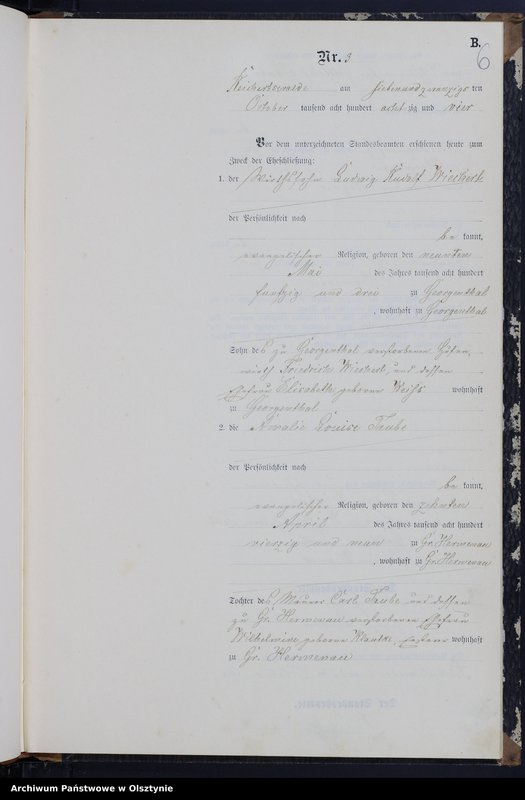 B.
6
Nr. 3
Reichertswalde am siebenundzwanzigs ten
October tausend acht hundert acht zig und vier
Vor dem unterzeichneten Standesbeamten erschienen heute zum
Zweck der Eheschließung:
1. der Wirthssohn Ludwig Rudolf Wiechert
der Persönlichkeit nach
be kannt,
evangelischer Religion, geboren den neunten
Mai des Jahres tausend acht hundert
fünfzig und drei zu Georgenthal
, wohnhaft zu Georgenthal
Sohn des zu Georgenthal verstorbenen
wirth Friedrich Wiechert und dessen
Ehefrau Elisabeth geborene Weiß wohnhaft
zu Georgenthal
2. die Amalie Louise Taube
der Persönlichkeit nach
be kannt,
evangelischer Religion, geboren den zehnten
April des Jahres tausend acht hundert
vierzig und neun zu Gr. Hermenau
, wohnhaft zu Gr. Hermenau
Tochter des Maurer Carl Taube und dessen
zu Gr. Hermenau verstorbenen Ehefrau
Wilhelmine geborene wohnhaft
zu Gr. Hermenau
Archiwum Państwowe w Olsztynie